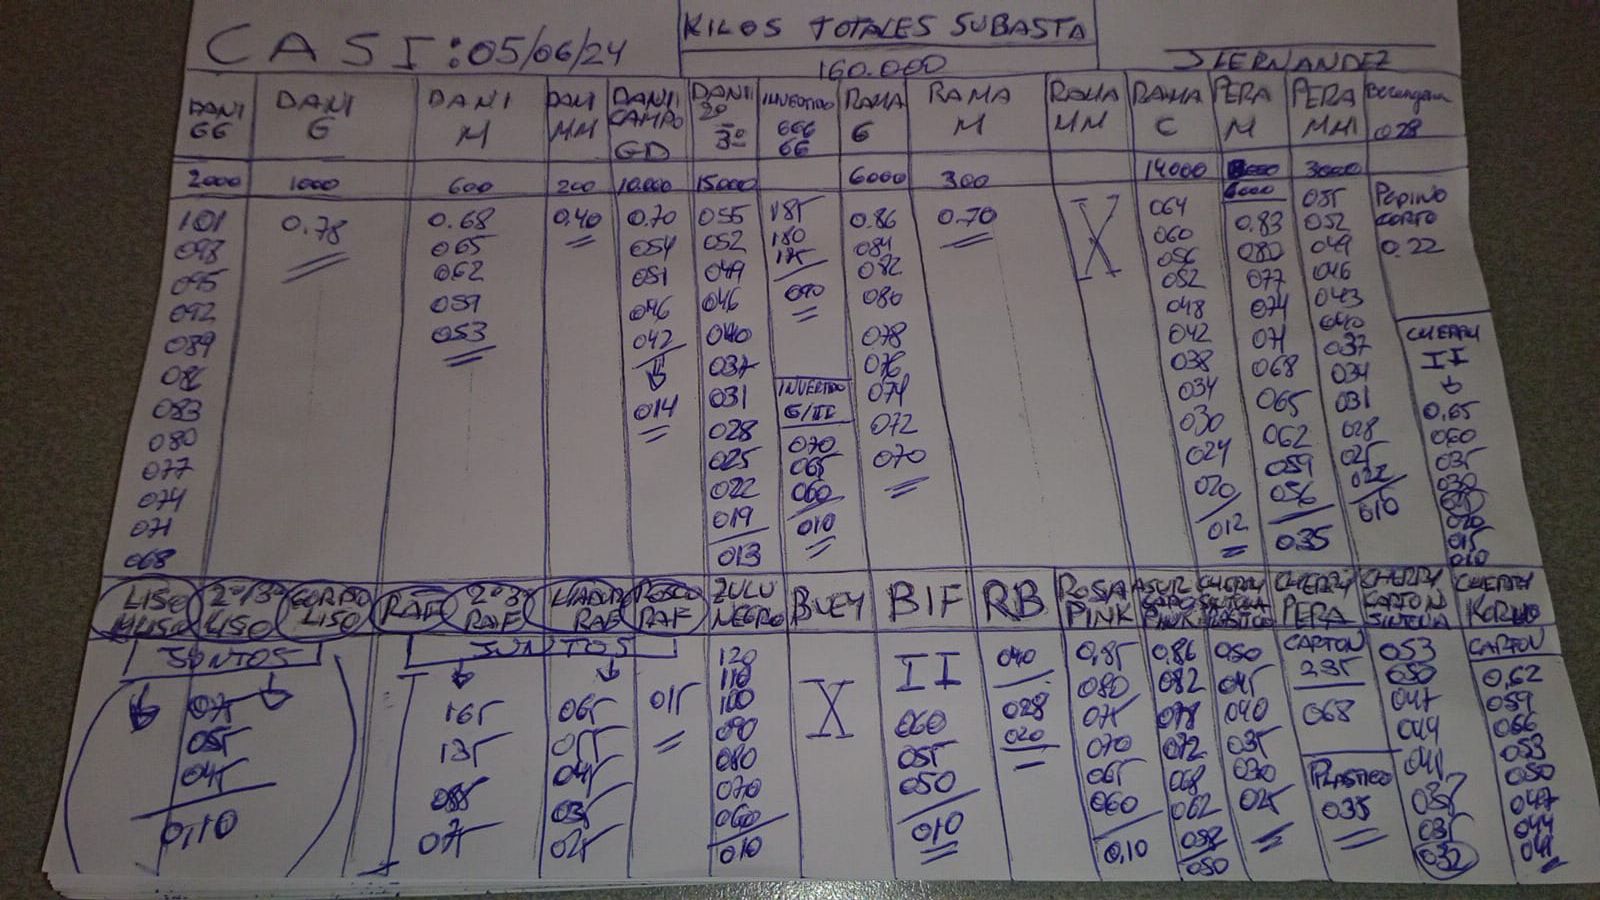 CASI: 05/06/24
KILOS TOTALES SUBASTA
160.000
DANI GG
DANI G
DANI M
DANI MM
DANI CAMPO GD
DANI 2º 3º
INVERTIDO GGG GG
RAMA G
RAMA M
RAMA MM
RAMA C
PERA M
PERA MM
Berengena 028
2000
1000
600
200
10.000
15000
6000
300
14000
6000
3000
101
098
095
092
089
086
083
080
077
074
071
068
0.78
0.68
065
062
059
053
0.40
0.70
054
051
046
042
014
055
052
049
046
040
037
031
028
025
022
019
013
185
180
175
090
INVERTIDO
G/II
070
065
060
010
0.86
084
082
080
078
076
074
072
070
0.70
X
064
060
056
052
048
042
038
034
030
024
020
012
0.83
080
077
074
071
068
065
062
059
056
035
055
052
049
046
043
040
037
034
031
028
025
022
010
PEPINO
CORTO
0.22
CHERRY
II
0,65
060
035
030
020
015
010
LISO
2º/3º LISO
GORDO LISO
RAF
2º 3º RAF
RAF
RAF
ZULU NEGRO
BUEY
BIF
RB
ROSA PINK
CHERRY PERA
CHERRY CARTON SINTONIA
CHERRY
JUNTOS
075
055
045
0,10
JUNTOS
165
135
085
075
065
055
045
035
025
015
120
110
100
090
080
070
060
010
X
II
060
055
050
010
040
028
020
0,85
080
075
070
065
060
0,10
0,86
082
078
072
068
062
058
050
050
045
040
035
030
025
CARTON
068
PLASTICO
035
053
050
047
044
041
038
035
032
CARTON
0,62
059
066
053
050
047
044
041